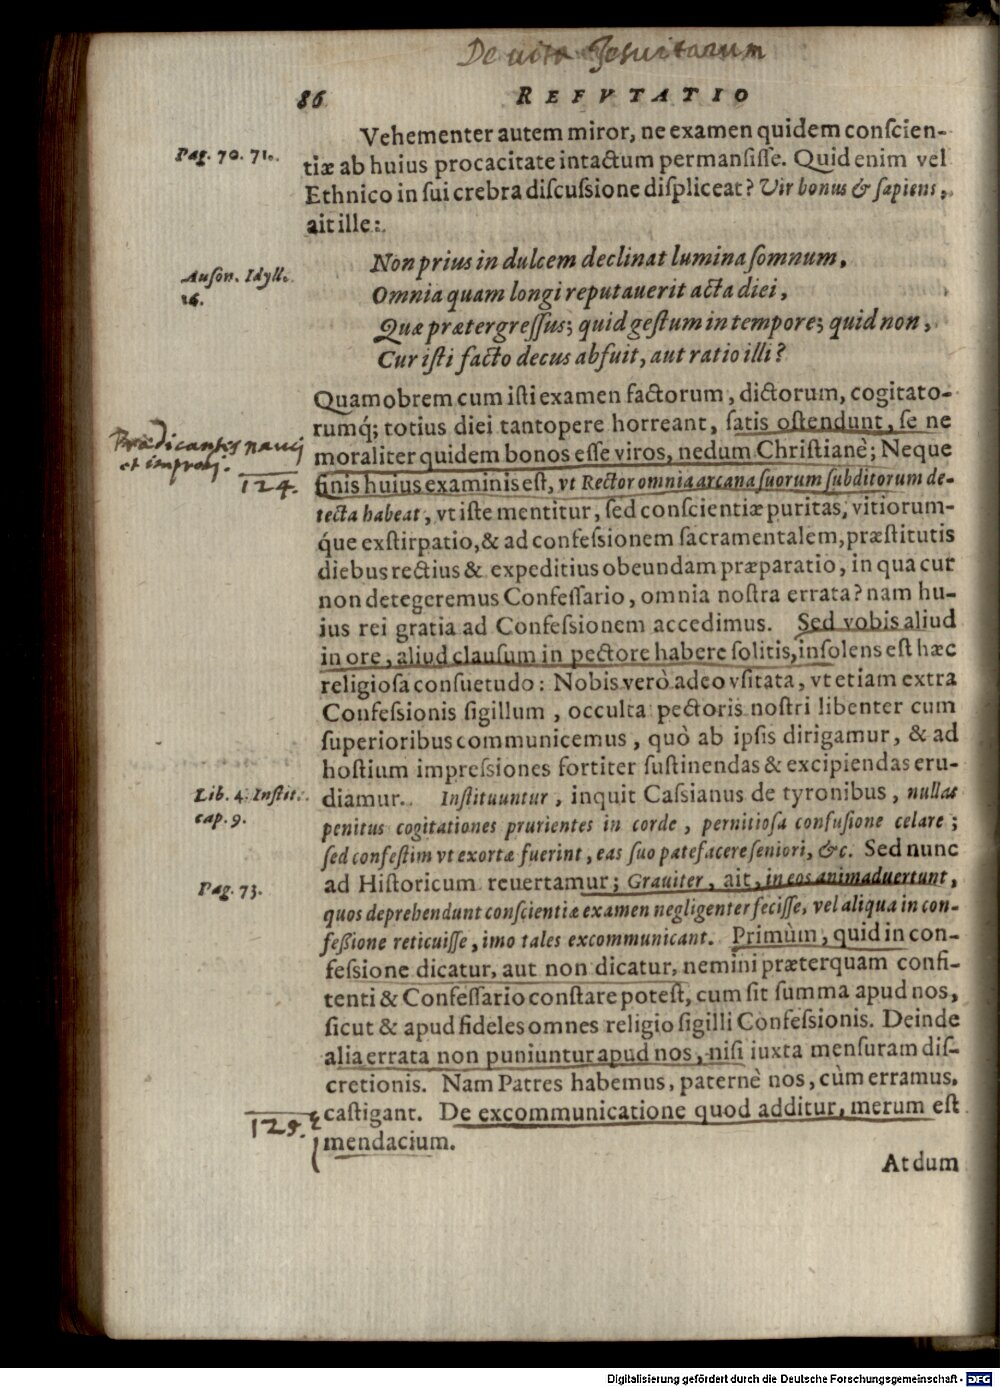 De vita Jesuitarum
86 REFVTATIO
Vehementer autem miror, ne examen quidem conſcien-
Pag. 70. 71.
tiæ ab huius procacitate intactum permanſiſſe. Quid enim vel
Ethnico in ſui crebra diſcuſsione diſpliceat? Vir bonus & ſapiens,
ait ille:
Auſon. Idyll.
16.
Non prius in dulcem declinat lumina ſomnum,
Omnia quam longi reputauerit acta diei,
Quæ prætergreſſus; quid geſtum in tempore; quid non,
Cur iſti facto decus abfuit, aut ratio illi?
Quamobrem cum iſti examen factorum, dictorum, cogitato-
rumq́; totius diei tantopere horreant, ſatis oſtendunt, ſe ne
Prædicantes
et improbi.
124.
moraliter quidem bonos eſſe viros, nedum Chriſtianè; Neque
finis huius examinis eſt, vt Rector omnia arcana ſuorum ſubditorum de-
tecta habeat, vt iſte mentitur, ſed conſcientiæ puritas, vitiorum-
q́ue exſtirpatio, & ad confeſsionem ſacramentalem, præſtitutis
diebus rectius & expeditius obeundam præparatio, in qua cur
non detegeremus Confeſſario, omnia noſtra errata? nam hu-
ius rei gratia ad Confeſsionem accedimus. Sed vobis aliud
in ore, aliud clauſum in pectore habere ſolitis, inſolens eſt hæc
religioſa conſuetudo: Nobis verò adeo vſitata, vt etiam extra
Confeſsionis ſigillum, occulta pectoris noſtri libenter cum
ſuperioribus communicemus, quò ab ipſis dirigamur, & ad
hoſtium impreſsiones fortiter ſuſtinendas & excipiendas eru-
Lib. 4. Inſtit.
cap. 9.
diamur. Inſtituuntur, inquit Caſsianus de tyronibus, nullas
penitus cogitationes prurientes in corde, pernitioſa confuſione celare;
ſed confeſtim vt exortæ fuerint, eas ſuo patefacere ſeniori, &c. Sed nunc
Pag. 73.
ad Hiſtoricum reuertamur; Grauiter, ait, in eos animaduertunt,
quos deprehendunt conſcientiæ examen negligenter feciſſe, vel aliqua in con-
feßione reticuiſſe, imo tales excommunicant. Primùm, quid in con-
feſsione dicatur, aut non dicatur, nemini præterquam confi-
tenti & Confeſſario conſtare poteſt, cum ſit ſumma apud nos,
ſicut & apud fideles omnes religio ſigilli Confeſsionis. Deinde
alia errata non puniuntur apud nos, niſi iuxta menſuram diſ-
cretionis. Nam Patres habemus, paternè nos, cùm erramus,
125.
caſtigant. De excommunicatione quod additur, merum eſt
mendacium.
At dum
Digitalisierung gefördert durch die Deutsche Forschungsgemeinschaft - DFG